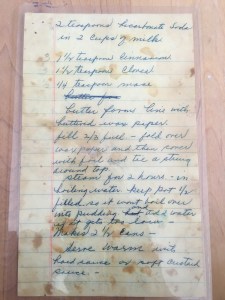 2 teaspoons bicarbonate soda
in 2 cups of milk
1 1/2 teaspoon Cinnamon
1 1/2 teaspoon Cloves
1/4 teaspoon mace
butter
butter form line with
buttered wax paper.
fill 2/3 full - fold over
wax paper and then cover
with foil and tie a string
around top.
Steam for 2 hours - in
boiling water keep pot 1/2
filled so it wont boil over
into pudding add water
if it gets too low -
Makes 2 1/2 cans -
Serve warm with
hard sauce or
sauce -